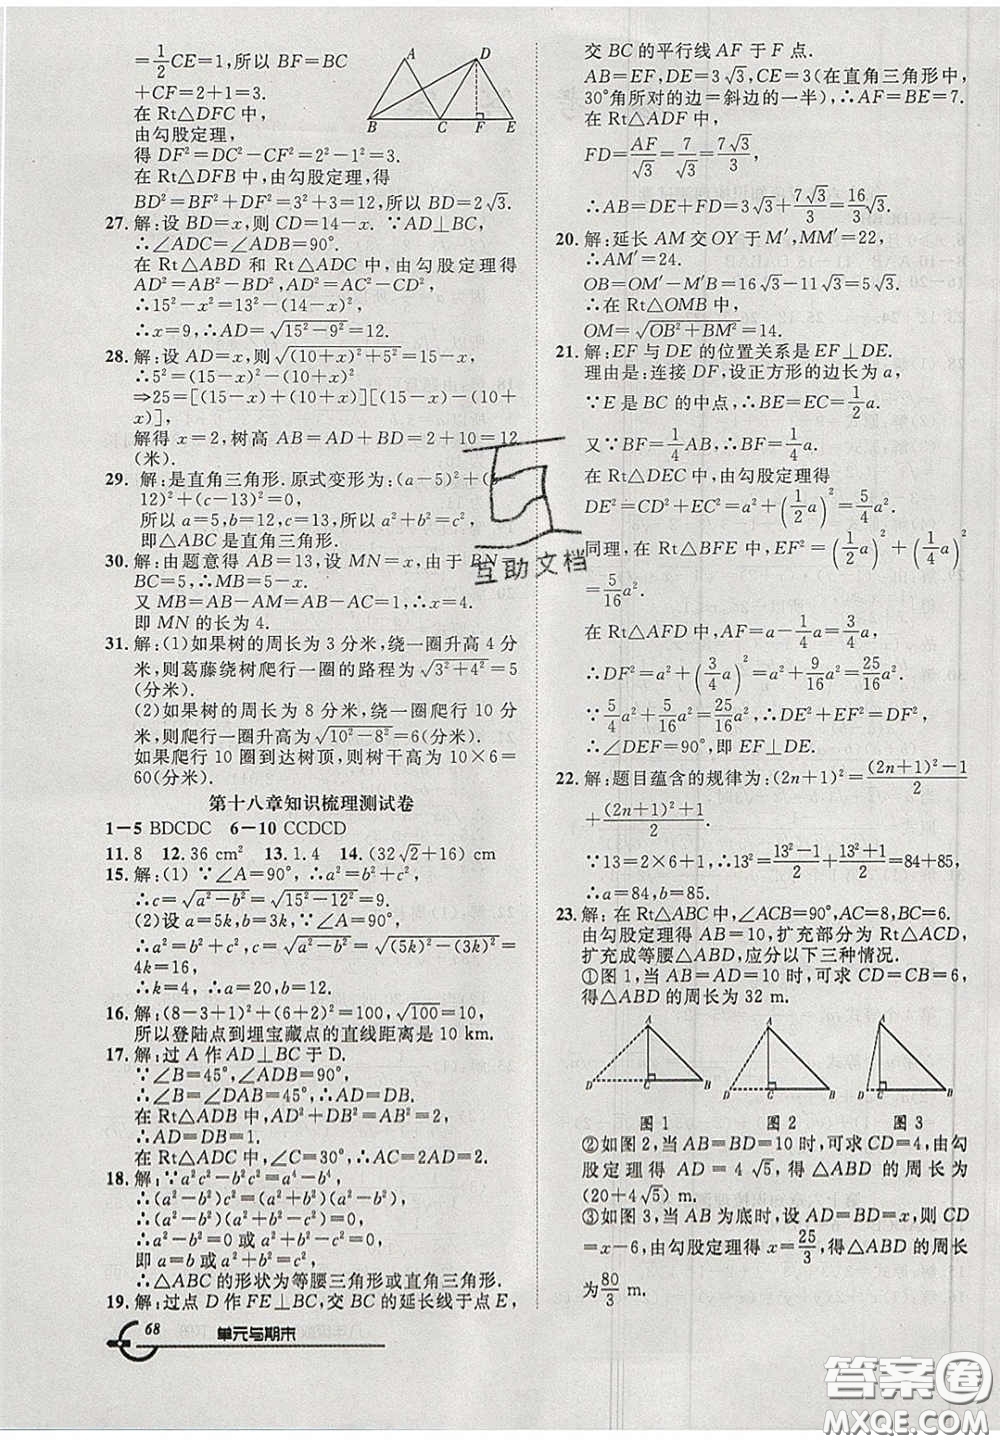 =1/2CE=1,所以 BF=BC
+CF=2+1=3.
在 Rt△DFC 中,
由勾股定理,
得 DF²=DC²-CF²=2²-1²=3.
在 Rt△DFB 中,由勾股定理,得
BD²=BF²+DF²=3²+3=12,所以 BD=2√3.
A D
B C F E
27. 解:设 BD=x,则 CD=14-x. ∵AD⊥BC,
∴∠ADC=∠ADB=90°.
在 Rt△ABD 和 Rt△ADC 中,由勾股定理得
AD²=AB²-BD²,AD²=AC²-CD²,
∴15²-x²=13²-(14-x)²,
∴x=9,∴AD=√(15²-9²)=12.
28. 解:设 AD=x,则√((10+x)²+5²)=15-x,
∴5²=(15-x)²-(10+x)²
⇒25=[(15-x)+(10+x)][(15-x)-(10+x)],
解得 x=2,树高 AB=AD+BD=2+10=12
(米).
29. 解:是直角三角形.原式变形为:(a-5)²+(b-
12)²+(c-13)²=0,
所以 a=5,b=12,c=13,所以 a²+b²=c²,
即△ABC 是直角三角形.
30. 解:由题意得 AB=13,设 MN=x,由于 BN=
BC=5,∴MB=5-x.
又 MB=AB-AM=AB-AC=1,∴x=4.
即 MN 的长为 4.
31. 解:(1)如果树的周长为 3 分米,绕一圈升高 4 分
米,则葛藤绕树爬行一圈的路程为√(3²+4²)=5
(分米).
(2)如果树的周长为 8 分米,绕一圈爬行 10 分
米,则爬行一圈升高√(10²-8²)=6(分米).
如果爬行 10 圈到达树顶,则树干高 10×6=
60(分米).
第十八章知识梳理测试卷
1-5 BDCDC 6-10 CCDCD
11. 8 12. 36 cm² 13. 1.4 14. (32√2+16) cm
15. 解:(1) ∵∠A=90°,∴a²=b²+c²,
∴c=√(a²-b²)=√(15²-12²)=9.
(2)设 a=5k,b=3k,∵∠A=90°,
∴a²=b²+c²,∴c=√(a²-b²)=√((5k)²-(3k)²)=
4k=16,
∴k=4,∴a=20,b=12.
16. 解:(8-3+1)²+(6+2)²=100,√100=10.
所以登陆点到埋宝藏点的直线距离是 10 km.
17. 解:过 A 作 AD⊥BC 于 D.
∵∠B=45°,∠ADB=90°,
∴∠B=∠DAB=45°,∴AD=DB.
在 Rt△ADB 中,AD²+DB²=AB²,
∴AD=DB=1.
在 Rt△ADC 中,∠C=30°,∴AC=2AD=2.
18. 解:∵a²c²-b²c²=a⁴-b⁴,
∴(a²-b²)c²=(a²+b²)(a²-b²),
∴(a²-b²)(a²+b²-c²)=0,
∴a²-b²=0 或 a²+b²-c²=0,
即 a=b 或 a²+b²=c²,
∴△ABC 的形状为等腰三角形或直角三角形.
19. 解:过点 D 作 FE⊥BC,交 BC 的延长线于点 E,
68 单元与期末
交 BC 的平行线 AF 于 F 点.
AB=EF,DE=3√3,CE=3(在直角三角形中,
30°角所对的边=斜边的一半),∴AF=BE=7.
在 Rt△ADF 中,
FD=AF/√3=7/√3=7√3/3,
∴AB=DE+FD=3√3+7√3/3=16/3√3.
20. 解:延长 AM 交 OY 于 M′,MM′=22,
∴AM′=24.
OB=OM′-M′B=16√3-5√3=11√3.
∴在 Rt△OMB 中,
OM=√(OB²+BM²)=14.
21. 解:EF 与 DE 的位置关系是 EF⊥DE.
理由是:连接 DF,设正方形的边长为 a,
∵E 是 BC 的中点,∴BE=EC=1/2a.
又∵BF=1/4AB,∴BF=1/4a.
在 Rt△DEC 中,由勾股定理得
DE²=DC²+EC²=a²+(1/2a)²=5/4a².
同理,在 Rt△BFE 中,EF²=(1/2a)²+(1/4a)²
=5/16a².
在 Rt△ADF 中,AF=a-1/4a=3/4a,
∴DF²=a²+(3/4a)²=a²+9/16a²=25/16a².
∵5/4a²+5/16a²=25/16a²,∴DE²+EF²=DF²,
∴∠DEF=90°,即 EF⊥DE.
22. 解:题目蕴含的规律为:(2n+1)²=((2n+1)²-1)/2
+((2n+1)²+1)/2.
∵13=2×6+1,∴13²=(13²-1)/2+(13²+1)/2=84+85,
∴a=84,b=85.
23. 解:在 Rt△ABC 中,∠ACB=90°,AC=8,BC=6.
由勾股定理得 AB=10,扩充部分为 Rt△ACD,
扩充成等腰△ABD,应分以下三种情况.
①图 1,当 AB=AD=10 时,可求 CD=CB=6,
得△ABD 的周长为 32 m.
A A A
D C B D C B D C B
图 1 图 2 图 3
②如图 2,当 AB=BD=10 时,可求 CD=4,由勾
股定理得 AD=4√5,得△ABD 的周长为
(20+4√5) m.
③如图 3,当 AB 为底时,设 AD=BD=x,则 CD
=x-6,由勾股定理得 x=25/3,得△ABD 的周长
为80/3 m.
互助文档
答案圈
MXQE.COM